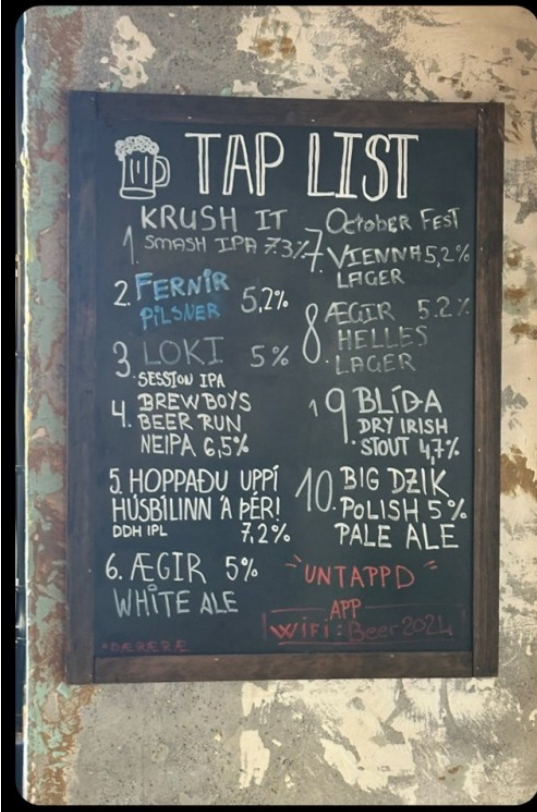 TAP LIST
KRUSH IT
1. SMASH IPA 7.3%
2. FERNIR
PILSNER 5,2%
3. LOKI 5%
SESSION IPA
4. BREW BOYS
BEER RUN
NEIPA 6,5%
5. HOPPAÐU UPPÍ
HÚSBÍLINN 'A ÞÉR!
DDH IPL 7,2%
6. ÆGIR 5%
WHITE ALE
*ÐÆRÆRÆ
OCtobeR FEST
7. VIENNA 5,2%
LAGER
8 ÆGIR 5.2%
HELLES
LAGER
9. BLÍÐA
DRY IRISH
STOUT 4,7%
10. BIG DZIK
POLISH 5%
PALE ALE
"UNTAPPD"
APP
WiFi: Beer2024